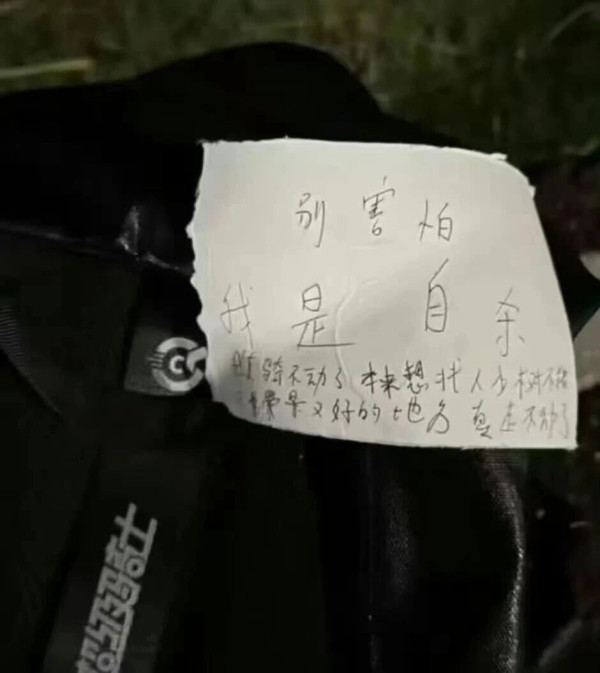 别害怕
我是 自杀
骑不动了 本来想找人少
景又好的地方 真走不动了
超级骑士